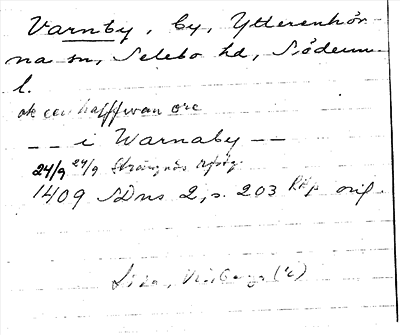 Varnby, by, Ytterenhör-
na sn, Selebo hd, Söderm.
l.
ok een halffwan öre
– – i Warnaby – –
24/9 24/9 Strängnäs
1409 SDns 2, s. 203 Rap orig.